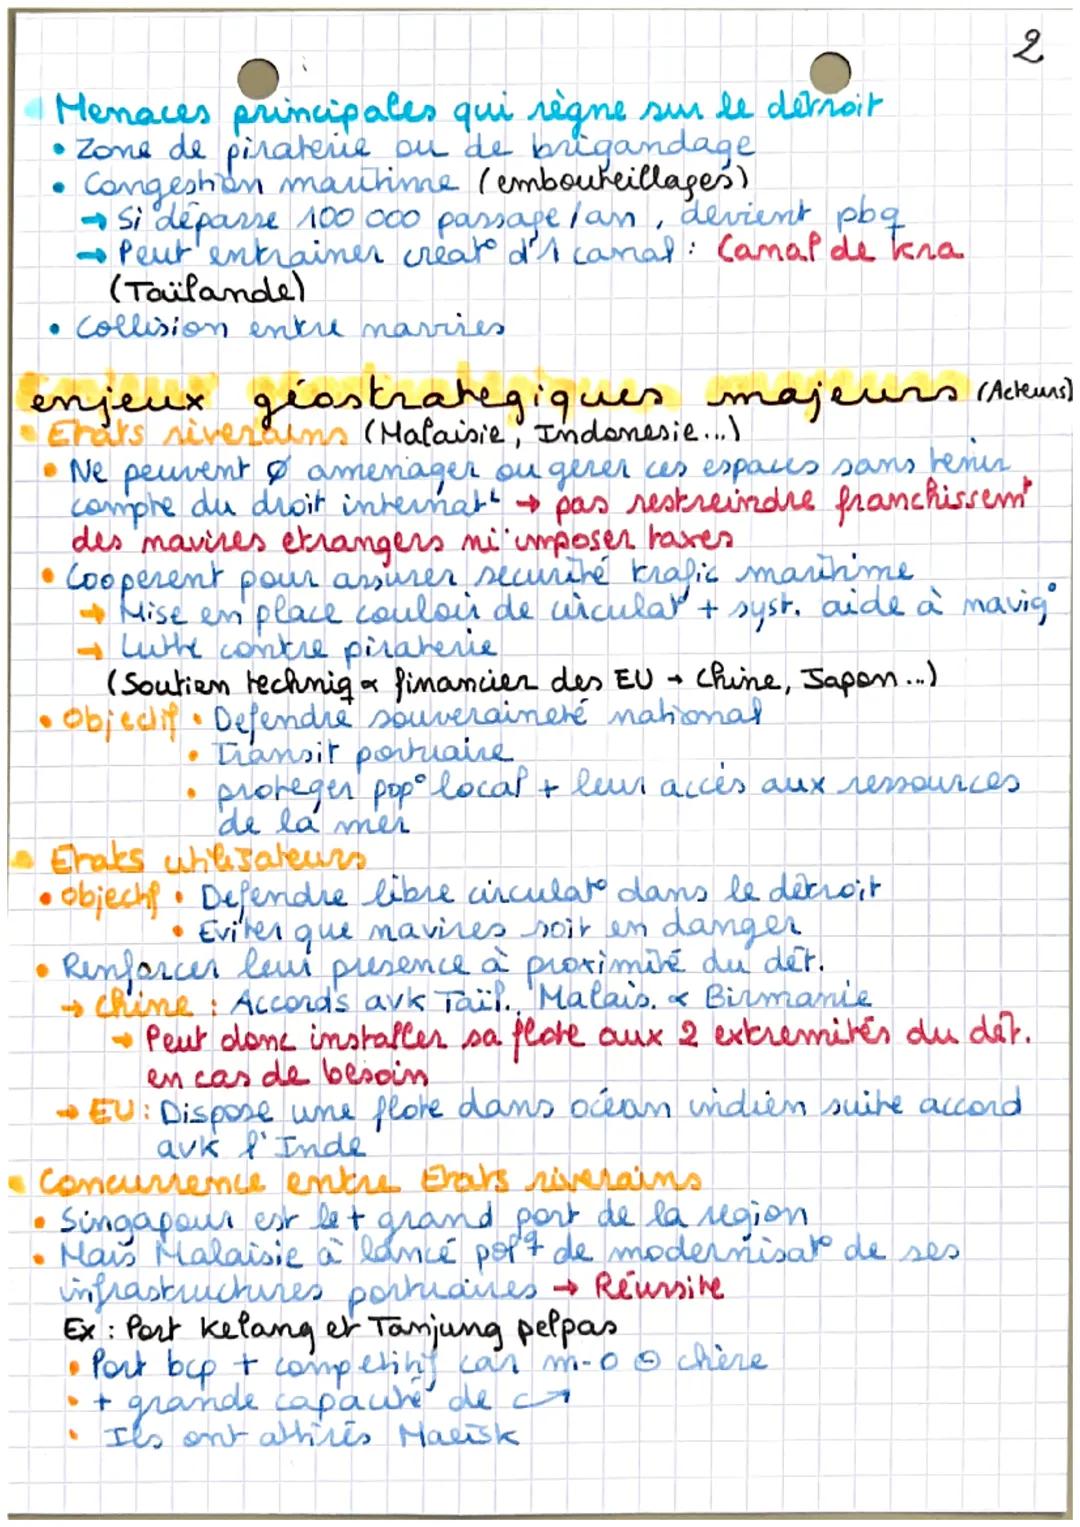 2
Menaces principales qui règne sur le détroit
• Zone de piraterie ou de brigandage
• Congestion maritime (embouteillages)
→ Si dépasse 100 000 passage/an, devient pbq
→ Peut entrainer creat° d'1 canal : Canal de kra
(Taïlande)
• Collision entre navires
enjeux géostrategiques majeurs (Acteurs)
Etats riverains (Malaisie, Indonesie...)
• Ne peuvent Ø amenager ou gerer ces espaces sans tenir
compte du droit internat^L → pas restreindre franchissem^t
des navires etrangers ni imposer taxes
• Cooperent pour assurer securité trafic maritime
→ Mise en place couloir de circulat° + syst. aide à navig°
→ Lutte contre piraterie
(Soutien techniq & financier des EU → Chine, Japon...)
• Objectif • Defendre souveraineté national
• Transit portuaire
• proteger pop° local + leur accès aux ressources
de la mer
Etats utilisateurs
• Objectif • Defendre libre circulat° dans le détroit
• Eviter que navires soit en danger
• Renforcer leur presence à proximité du dét.
→ Chine : Accords avk Taïl., Malais. & Birmanie
→ Peut donc installer sa flote aux 2 extremités du dét.
en cas de besoin
→ EU : Dispose une flote dans océan indien suite accord
avk l'Inde
Concurrence entre Etats riverains
• Singapour est le + grand port de la region
• Mais Malaisie à lancé pol^q de modernisat° de ses
infrastructures portuaires → Réussite
Ex : Port Kelang et Tanjung pelpas
• Port bcp + competitif car m-o ⊖ chère
• + grande capacité de c↗
• Ils ont attirés Maersk